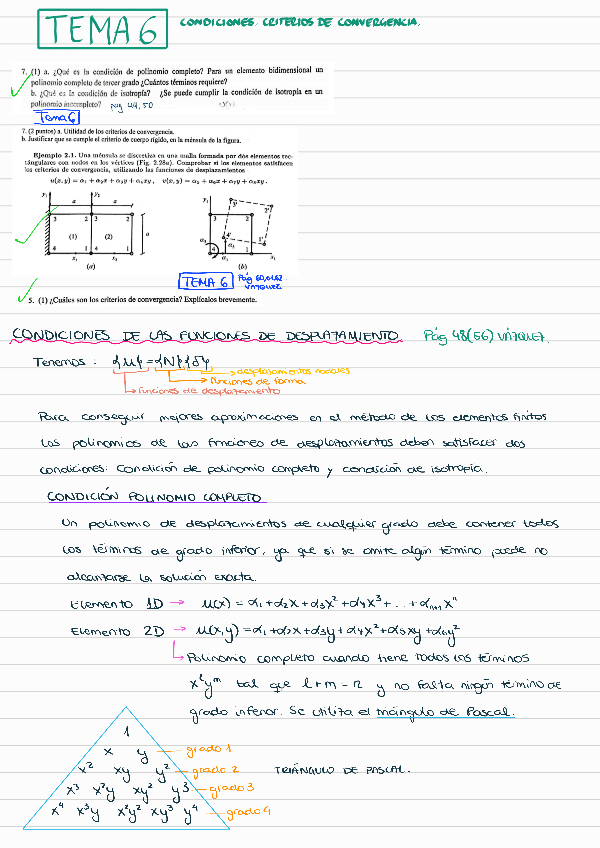 TEMA 6 CONDICIONES. CRITERIOS DE CONVERGENCIA.
7. (1) a. ¿Qué es la condición de polinomio completo? Para un elemento bidimensional un
polinomio completo de tercer grado ¿Cuántos términos requiere?
b. ¿Qué es la condición de isotropía? ¿Se puede cumplir la condición de isotropía en un
polinomio incompleto? pág 49, 50
Tema 6
7. (2 puntos) a. Utilidad de los criterios de convergencia.
b. Justificar que se cumple el criterio de cuerpo rígido, en la ménsula de la figura.
Ejemplo 2.1. Una ménsula se discretiza en una malla formada por dos elementos rec-
tángulares con nodos en los vértices (Fig. 2.28a). Comprobar si los elementos satisfacen
los criterios de convergencia, utilizando las funciones de desplazamientos
u(x, y) = α₁ + α₂x + α₃y + α₄xy, v(x, y) = α₅ + α₆x + α₇y + α₈xy.
y₁ y₂
a a
3 2 3 2
(1) (2) a
4 1 4 1
x₁ x₂
(a)
y₁ 3' 2'
3 2
4' 1'
α₅ α₃
4 1
α₁ x₁
(b)
TEMA 6 Pág 60,61,62 VÁZQUEZ
5. (1) ¿Cuáles son los criterios de convergencia? Explícalos brevemente.
CONDICIONES DE LAS FUNCIONES DE DESPLAZAMIENTO. Pág 48(56) VÁZQUEZ.
Tenemos: {u} = {N}{δ}
desplazamientos nodales
funciones de forma
funciones de desplazamiento
Para conseguir mejores aproximaciones en el método de los elementos finitos
los polinomios de las funciones de desplazamientos deben satisfacer dos
condiciones: Condición de polinomio completo y condición de isotropía.
CONDICIÓN POLINOMIO COMPLETO
Un polinomio de desplazamientos de cualquier grado debe contener todos
los términos de grado inferior, ya que si se omite algún término puede no
alcanzarse la solución exacta.
Elemento 1D → u(x) = α₁ + α₂x + α₃x² + α₄x³ + ... + αₙ₊₁xⁿ
Elemento 2D → u(x,y) = α₁ + α₂x + α₃y + α₄x² + α₅xy + α₆y²
Polinomio completo cuando tiene todos los términos
xˡyᵐ tal que l+m = n y no falta ningún término de
grado inferior. Se utiliza el triángulo de Pascal.
1
x y grado 1
x² xy y² grado 2 TRIÁNGULO DE PASCAL.
x³ x²y xy² y³ grado 3
x⁴ x³y x²y² xy³ y⁴ grado 4